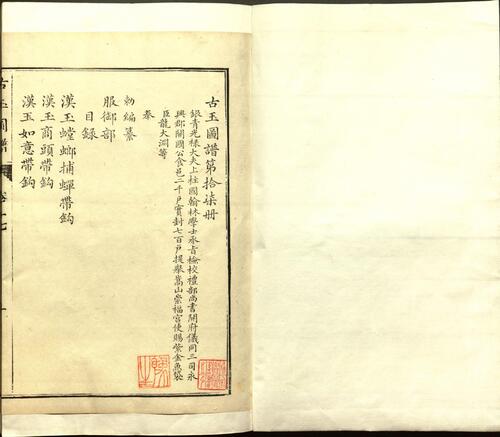 古玉圖譜第拾柒冊
銀青光祿大夫上柱國翰林學士承旨檢校禮部尚書開府儀同三司永
興郡開國公食邑二千戶實封七百戶提舉嵩山崇福宮使賜紫金魚袋
臣龍大淵等
奉
勅編纂
服御部
目錄
漢玉螳螂捕蟬帶鈎
漢玉商頭帶鈎
漢玉如意帶鈎
古玉圖譜